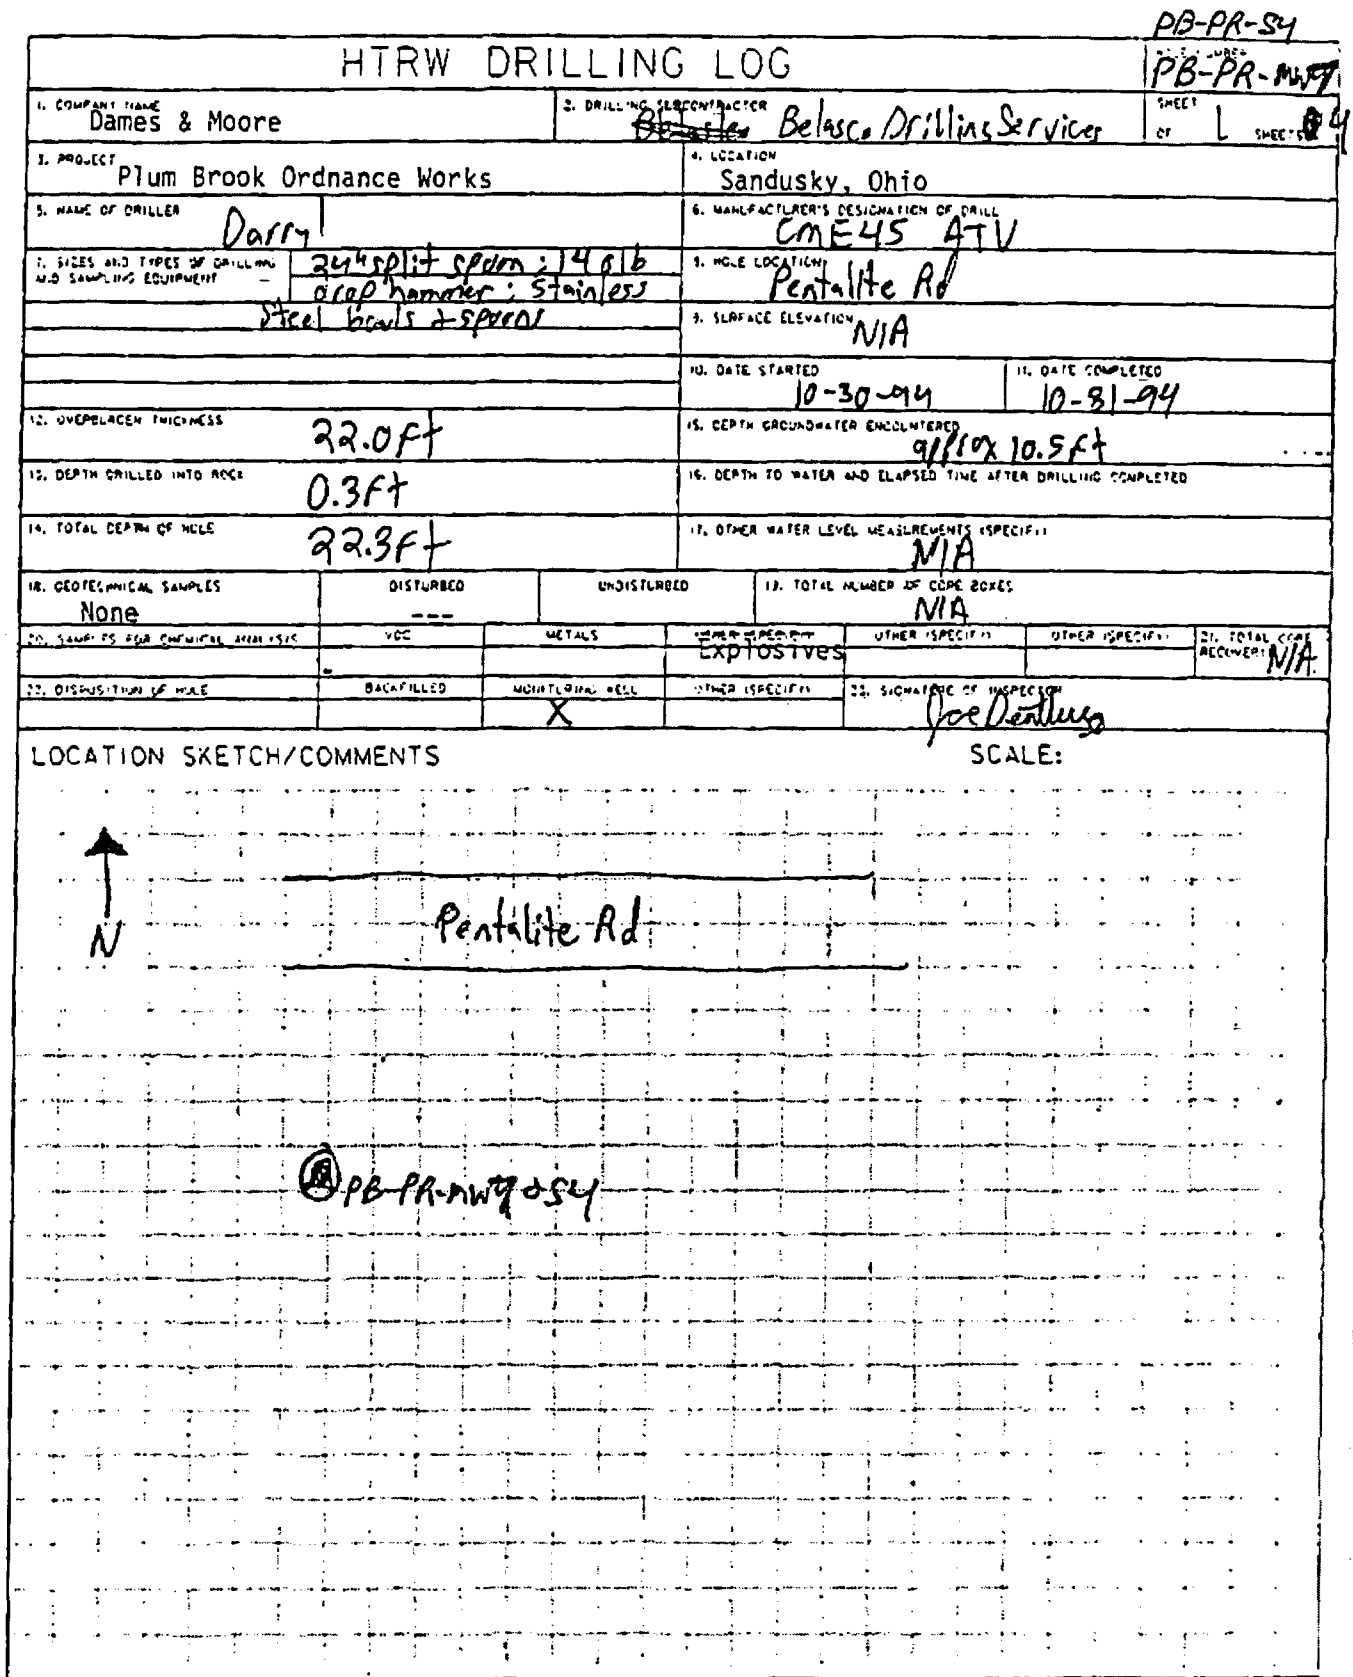 PB-PR-S4
HTRW DRILLING LOG
HOLE NUMBER
PB-PR-MW9
1. COMPANY NAME
Dames & Moore
2. DRILLING SUBCONTRACTOR
Belasco Drilling Services
SHEET
OF 1 SHEETS 4
3. PROJECT
Plum Brook Ordnance Works
4. LOCATION
Sandusky, Ohio
5. NAME OF DRILLER
Darryl
6. MANUFACTURER'S DESIGNATION OF DRILL
CME45 ATV
7. SIZES AND TYPES OF DRILLING
AND SAMPLING EQUIPMENT
24" split spoon; 140lb
drop hammer; Stainless
Steel bowls & spoons
8. HOLE LOCATION
Pentalite Rd
9. SURFACE ELEVATION
N/A
10. DATE STARTED
10-30-94
11. DATE COMPLETED
10-31-94
12. OVERBURDEN THICKNESS
22.0ft
15. DEPTH GROUNDWATER ENCOUNTERED
approx 10.5ft
13. DEPTH DRILLED INTO ROCK
0.3ft
16. DEPTH TO WATER AND ELAPSED TIME AFTER DRILLING COMPLETED
14. TOTAL DEPTH OF HOLE
22.3ft
17. OTHER WATER LEVEL MEASUREMENTS (SPECIFY)
N/A
18. GEOTECHNICAL SAMPLES
None
DISTURBED
---
UNDISTURBED
19. TOTAL NUMBER OF CORE BOXES
N/A
20. SAMPLES FOR CHEMICAL ANALYSIS
VOC
METALS
OTHER (SPECIFY)
Explosives
OTHER (SPECIFY)
OTHER (SPECIFY)
21. TOTAL CORE
RECOVERY N/A
22. DISPOSITION OF HOLE
BACKFILLED
MONITORING WELL
X
OTHER (SPECIFY)
23. SIGNATURE OF INSPECTOR
Joe
LOCATION SKETCH/COMMENTS
SCALE:
N
Pentalite Rd
PB-PR-MW9 & S4